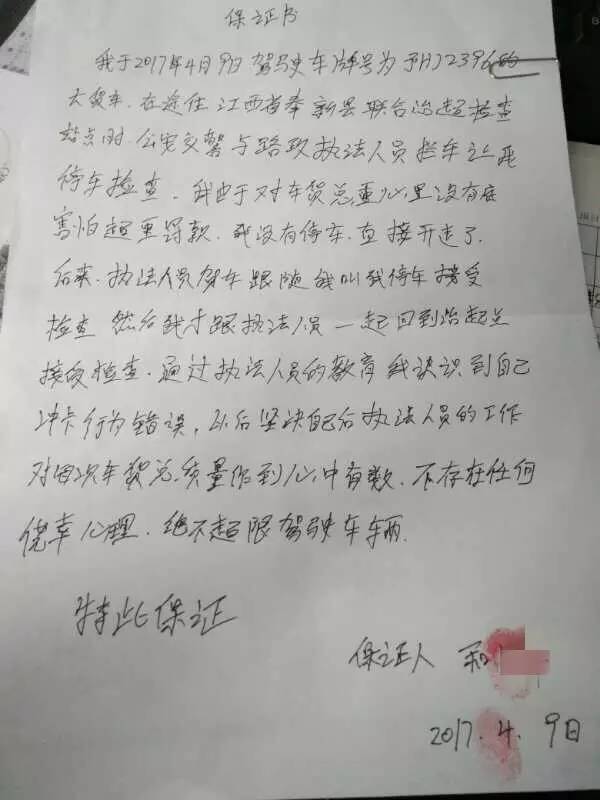 保证书
我于2017年4月9日驾驶车牌号为予HJ2396的
大货车.在途住江西省奉新县联合治超检查
站点时.公安交警与路政执法人员拦车
停车检查.我由于对车货总重心里没有底
害怕超重罚款.我没有停车.直接开走了.
后来.执法人员驾车跟随我叫我停车接受
检查 然后我才跟执法人员一起回到治超点
接受检查.通过执法人员的教育我认识到自己
冲卡行为错误,以后坚决配合执法人员的工作
对每次车货总质量做到心中有数.不存在任何
侥幸心理.绝不超限驾驶车辆.
特此保证
保证人
2017.4.9日